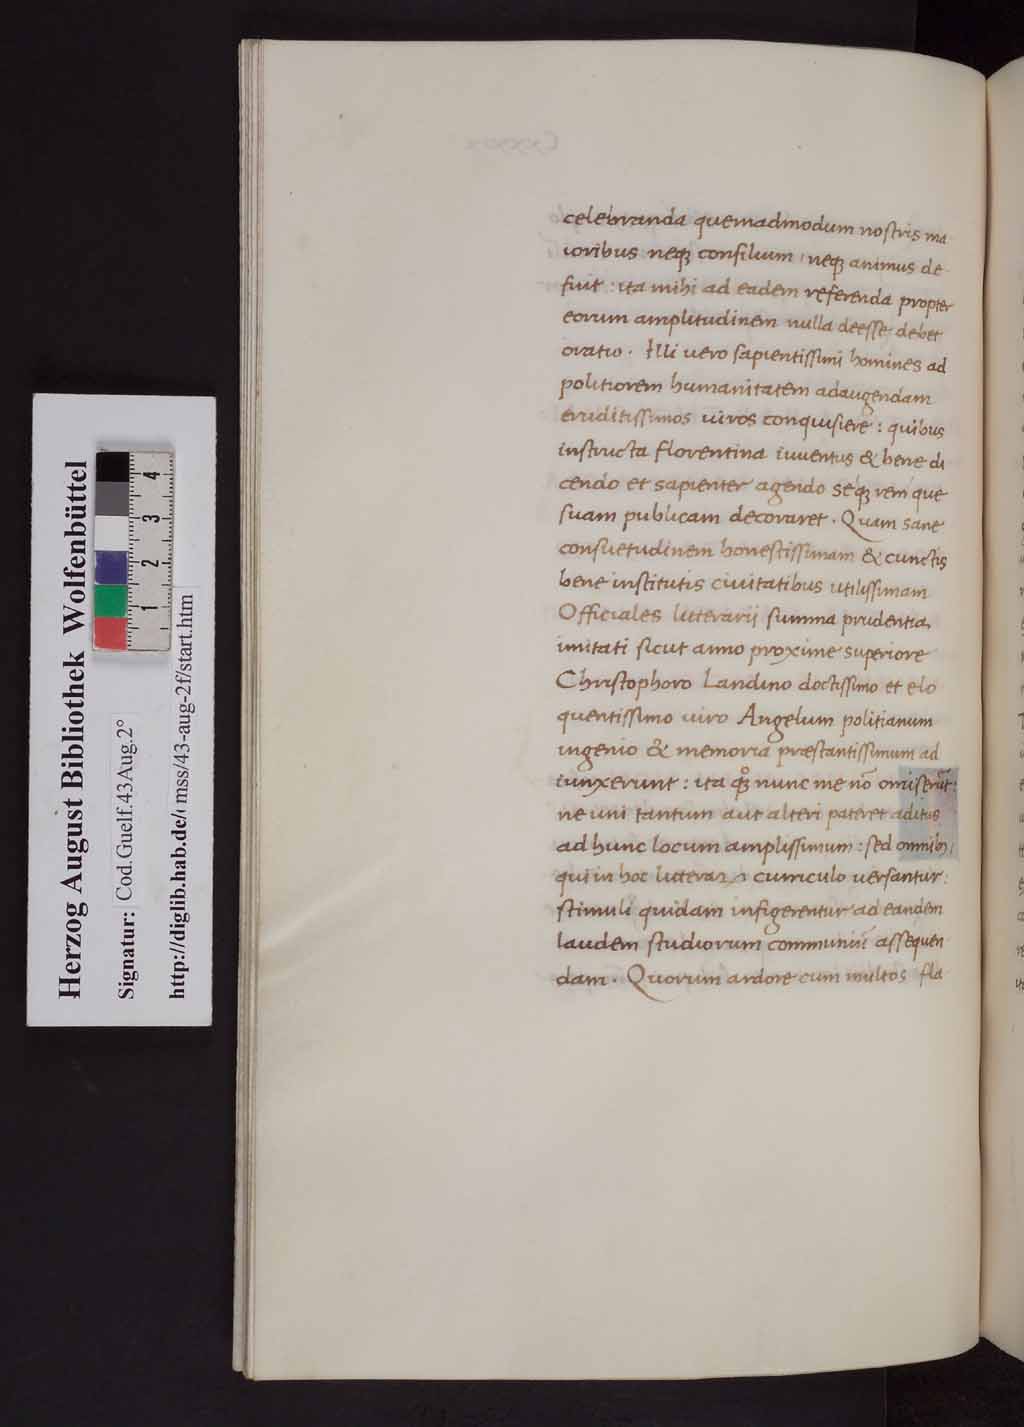 celebranda quemadmodum nostris ma
ioribus neqꝫ consilium / neqꝫ animus de
fuit : ita mihi ad eadem referenda propter
eorum amplitudinem nulla deesse debet
oratio . Illi uero sapientissimi homines ad
politiorem humanitatem adaugendam
eruditissimos uiros conquisiere : quibus
instructa florentina iuuentus & bene di
cendo et sapienter agendo seqꝫ rem que
suam publicam decoraret . Quam sane
consuetudinem honestissimam & cunctis
bene institutis ciuitatibus utilissimam
Officiales litterarij summa prudentia
imitati sicut anno proxime superiore
Christophoro Landino doctissimo et elo
quentissimo uiro Angelum politianum
ingenio & memoria præstantissimum ad
iunxerunt : ita qꝫ nunc me nō omiserūt :
ne uni tantum aut alteri pateret aditus
ad hunc locum amplissimum : sed omnibꝫ
qui in hoc litteraꝝ curriculo uersantur :
stimuli quidam infigerentur ad eandem
laudem studiorum communiū assequen
dam . Quorum ardore cum multos fla
Herzog August Bibliothek Wolfenbüttel
Signatur: Cod.Guelf.43Aug.2°
http://diglib.hab.de/ mss/43-aug-2f/start.htm
1 2 3 4